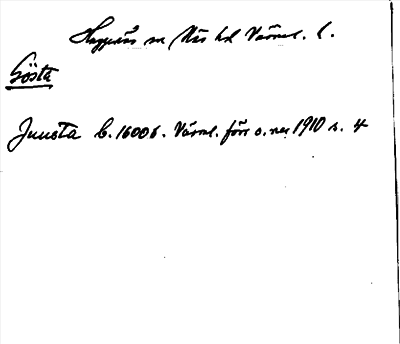 sn Näs hd Värml. l.
Gösta
Junsta b. 1600 t. Värml. förr o. nu 1910 s. 4